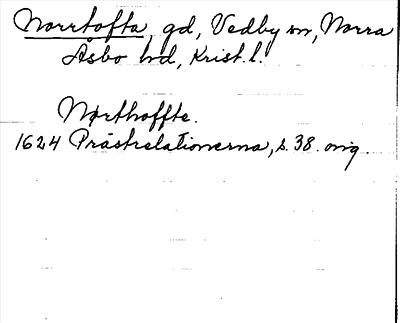 Norrtofta, gd, Vedby sn, Norra
Åsbo hd, Krist. l.
Northoffte.
1624 Prästrelationerna, s. 38. orig.